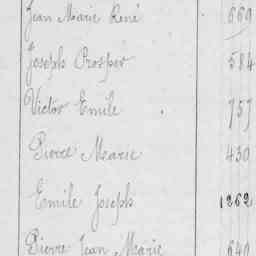 Jean Marie René 669
Joseph Prosper 584
Victor Emile 757
Pierre Marie 430
Emile Joseph 1262
Pierre Jean Marie 640